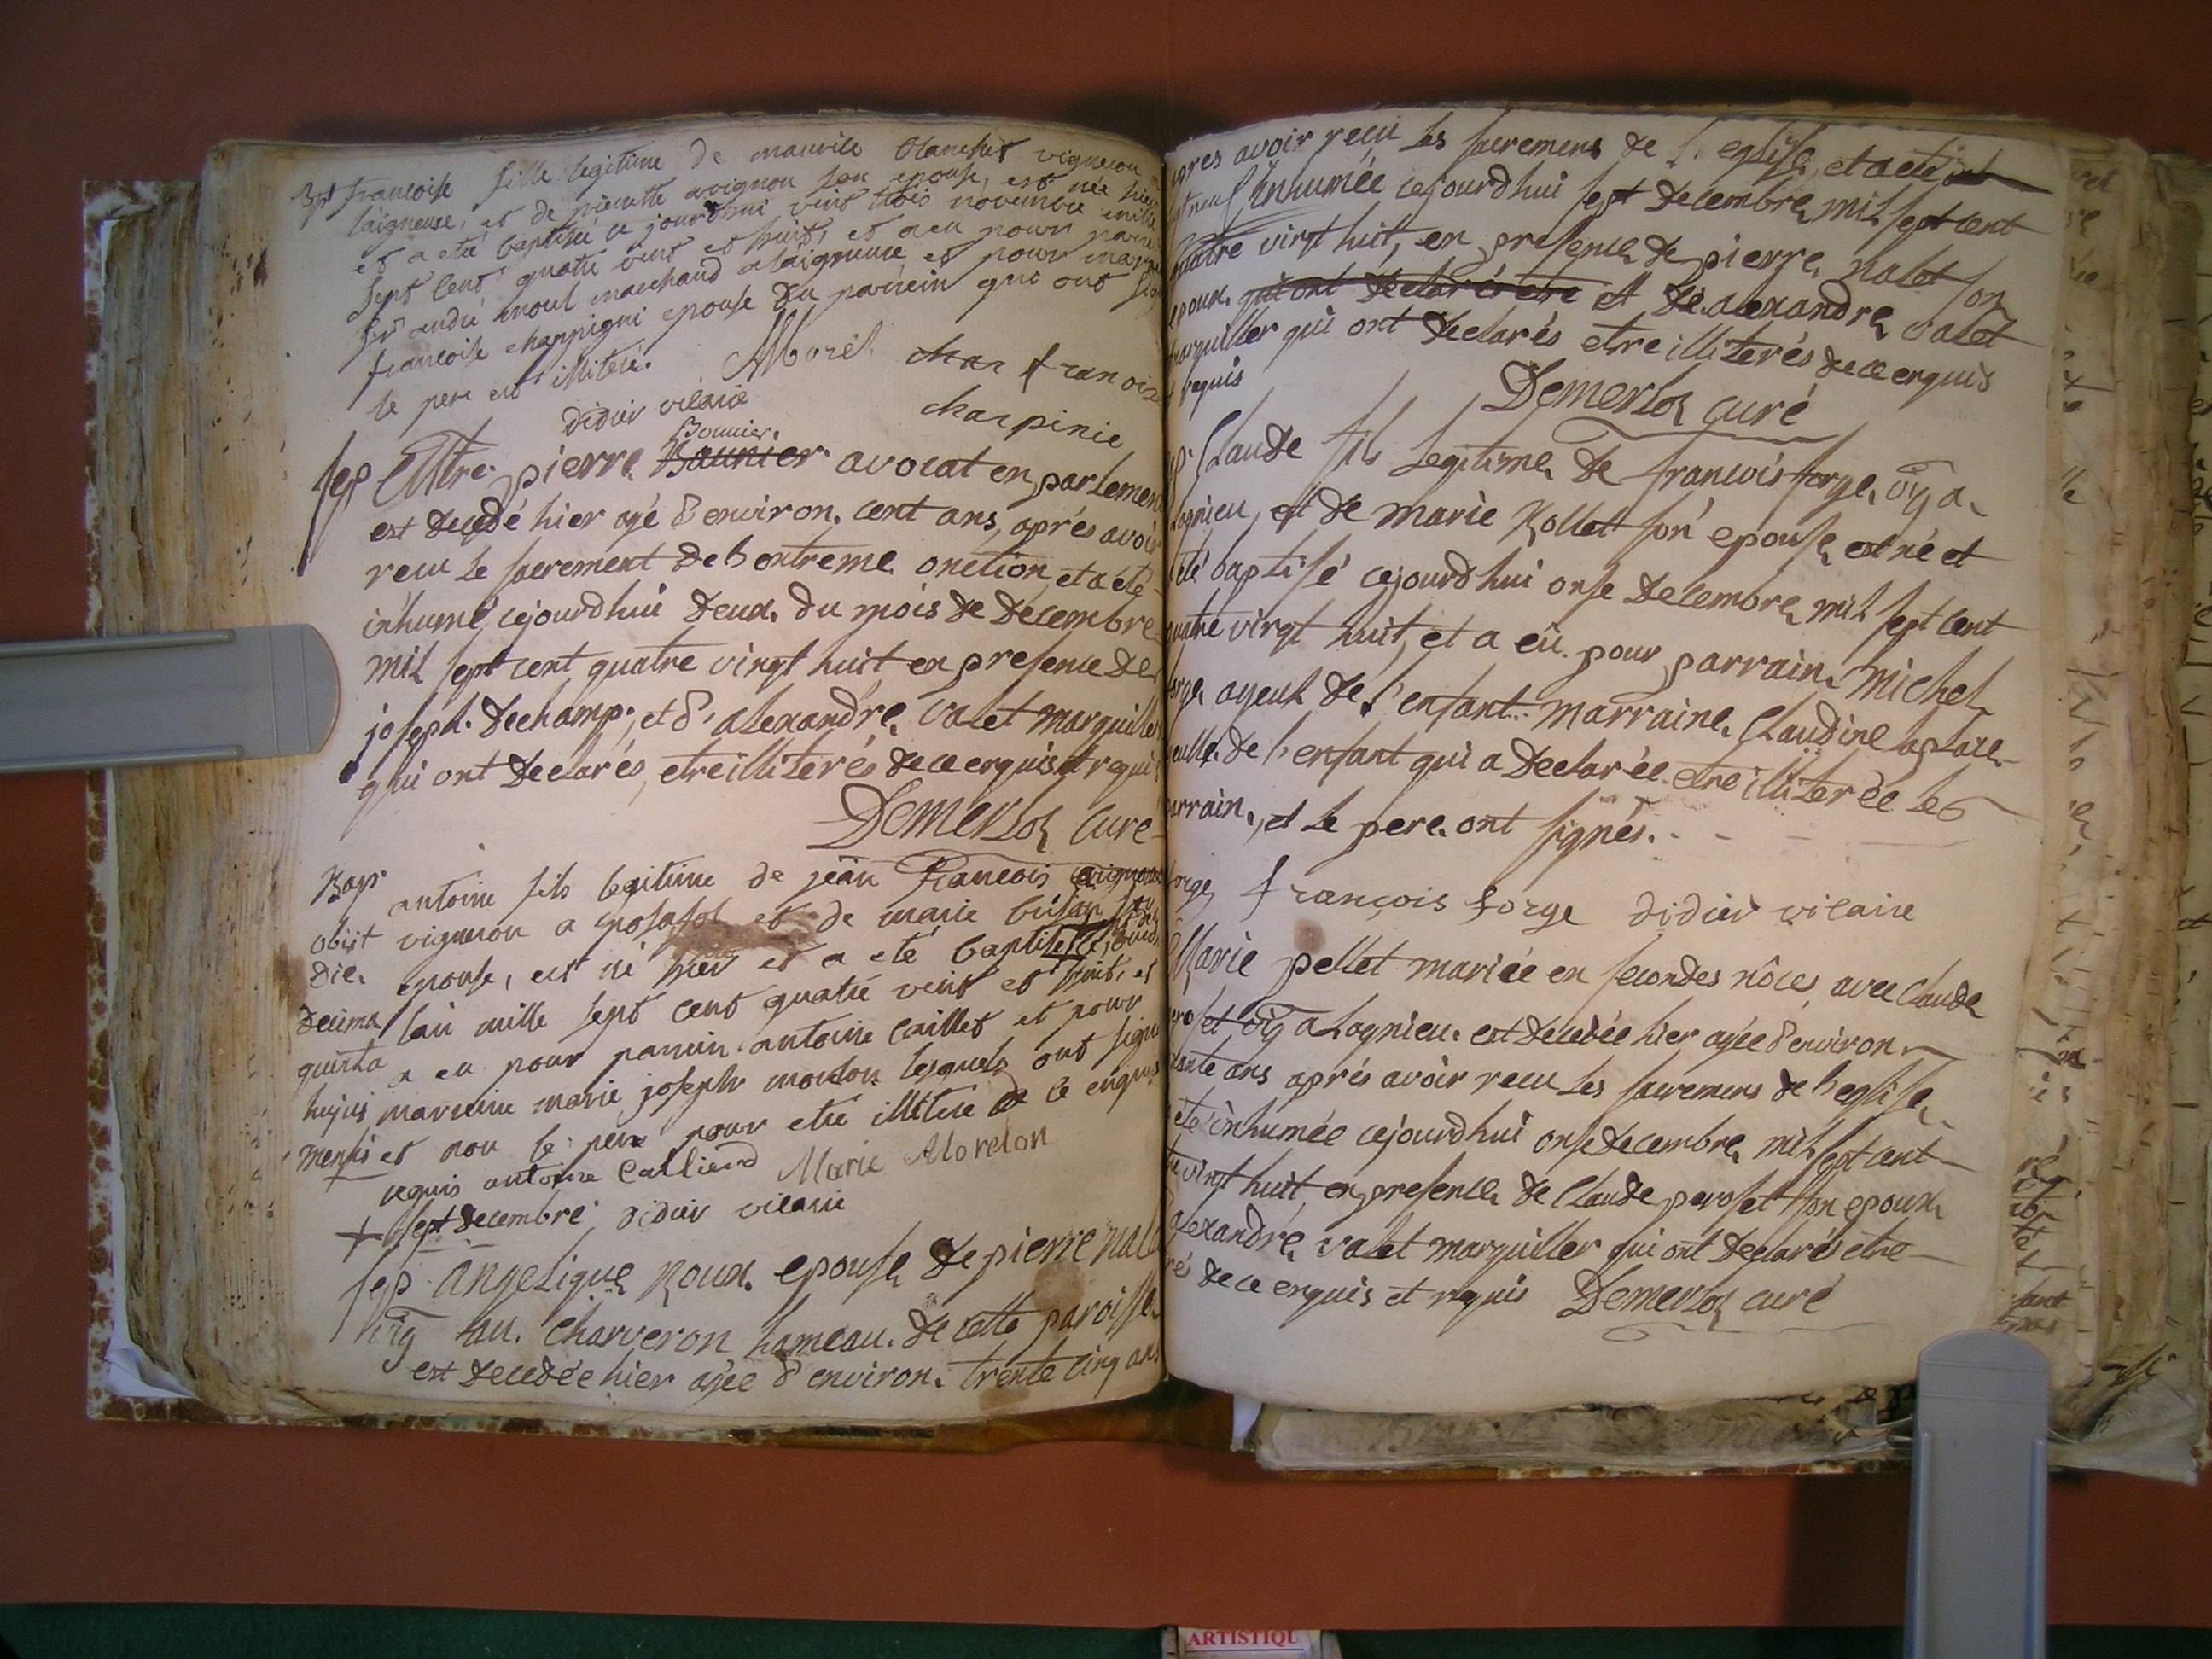 Bpt francoise fille legitime de maurice blanchet vigneron
laigneuse, et de pierrette avignon son epouse, est née hier
et a eté baptisée ce jourdhui vint trois novembre mille
sept cent quatre vint et huit, et a eu pour
Sr andré morel marchand a laigneuse et pour
francoise champigni epouse du parrein qui ont
le pere est illiteré. AMorel char francoise
didier vilaine charpinie
Bonnier
sep Mtre pierre Baunier avocat en parlement
est decedé hier agé d'environ cent ans, aprés avoir
recu le sacrement de l'extreme onction, et a été
inhumé cejourdhui deux du mois de decembre
mil sept cent quatre vingt huit en presence de
joseph dechamp, et d'alexandre valet marguiller
qui ont declarés, etre illiterés de ce enquis et requis
Demerloz curé
Bapt antoine fils legitime de jean francois avignon
obiit vigneron a et de marie
die epouse, est né hier et a eté baptisé le
decima lan mille sept cent quatre vint et huit, et
quinta a eu pour parrein antoine caillet et pour
hujus marreine marie joseph morelon lesquels ont signé
mensis et non le pere pour etre illiteré de ce enquis
requis antoine Calliend Marie Morelon
+ sept decembre didier vilaine
sep angelique Roux epouse de pierre nalet
vig au charveron hameau de cette paroisse
est decedée hier agée d'environ trente cinq ans
apres avoir reçu les sacremens de l'eglise, et a eté
inhumée cejourdhui sept decembre mil sept cent
quatre vingt huit, en presence de pierre nalet son
epoux qui ont declarés etre et de alexandre valet
marguiller qui ont declarés etre illiterés de ce enquis
et requis
Demerloz curé
Claude fils legitime de francois forge vig a
Lagnieu, et de marie Rollet son epouse est né et
été baptisé cejourdhui onse decembre mil sept cent
quatre vingt huit, et a eu pour parrain michel
forge ayeul de l'enfant marraine Claudine
de l'enfant qui a declarée etre illiterée le
parrain, et le pere ont signés.
forge francois forge didier vilaine
Marie pellet mariée en secondes nôces avec claude
peroset vig a Lagnieu est decedée hier agée d'environ
ans aprés avoir recu les sacremens de l'eglise
eté inhumée cejourdhui onse decembre mil sept cent
vingt huit en presence de Claude peroset son epoux
alexandre valet marguiller qui ont declaré etre
de ce enquis et requis Demerloz curé
ARTISTIQU